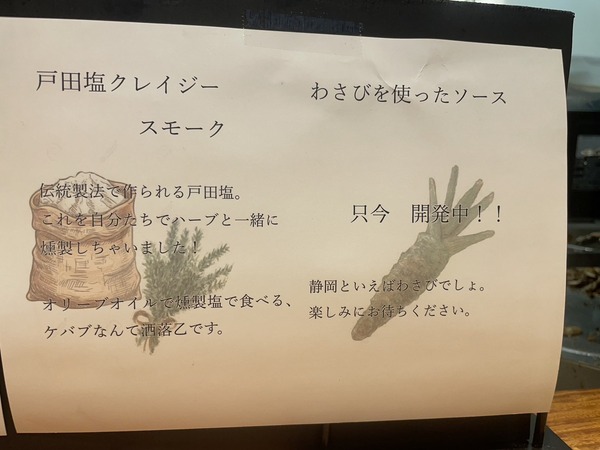 戸田塩クレイジー
スモーク
伝統製法で作られる戸田塩。
これを自分たちでハーブと一緒に
燻製しちゃいました！
オリーブオイルで燻製塩で食べる、
ケバブなんて洒落乙です。
わさびを使ったソース
只今　開発中！！
静岡といえばわさびでしょ。
楽しみにお待ちください。